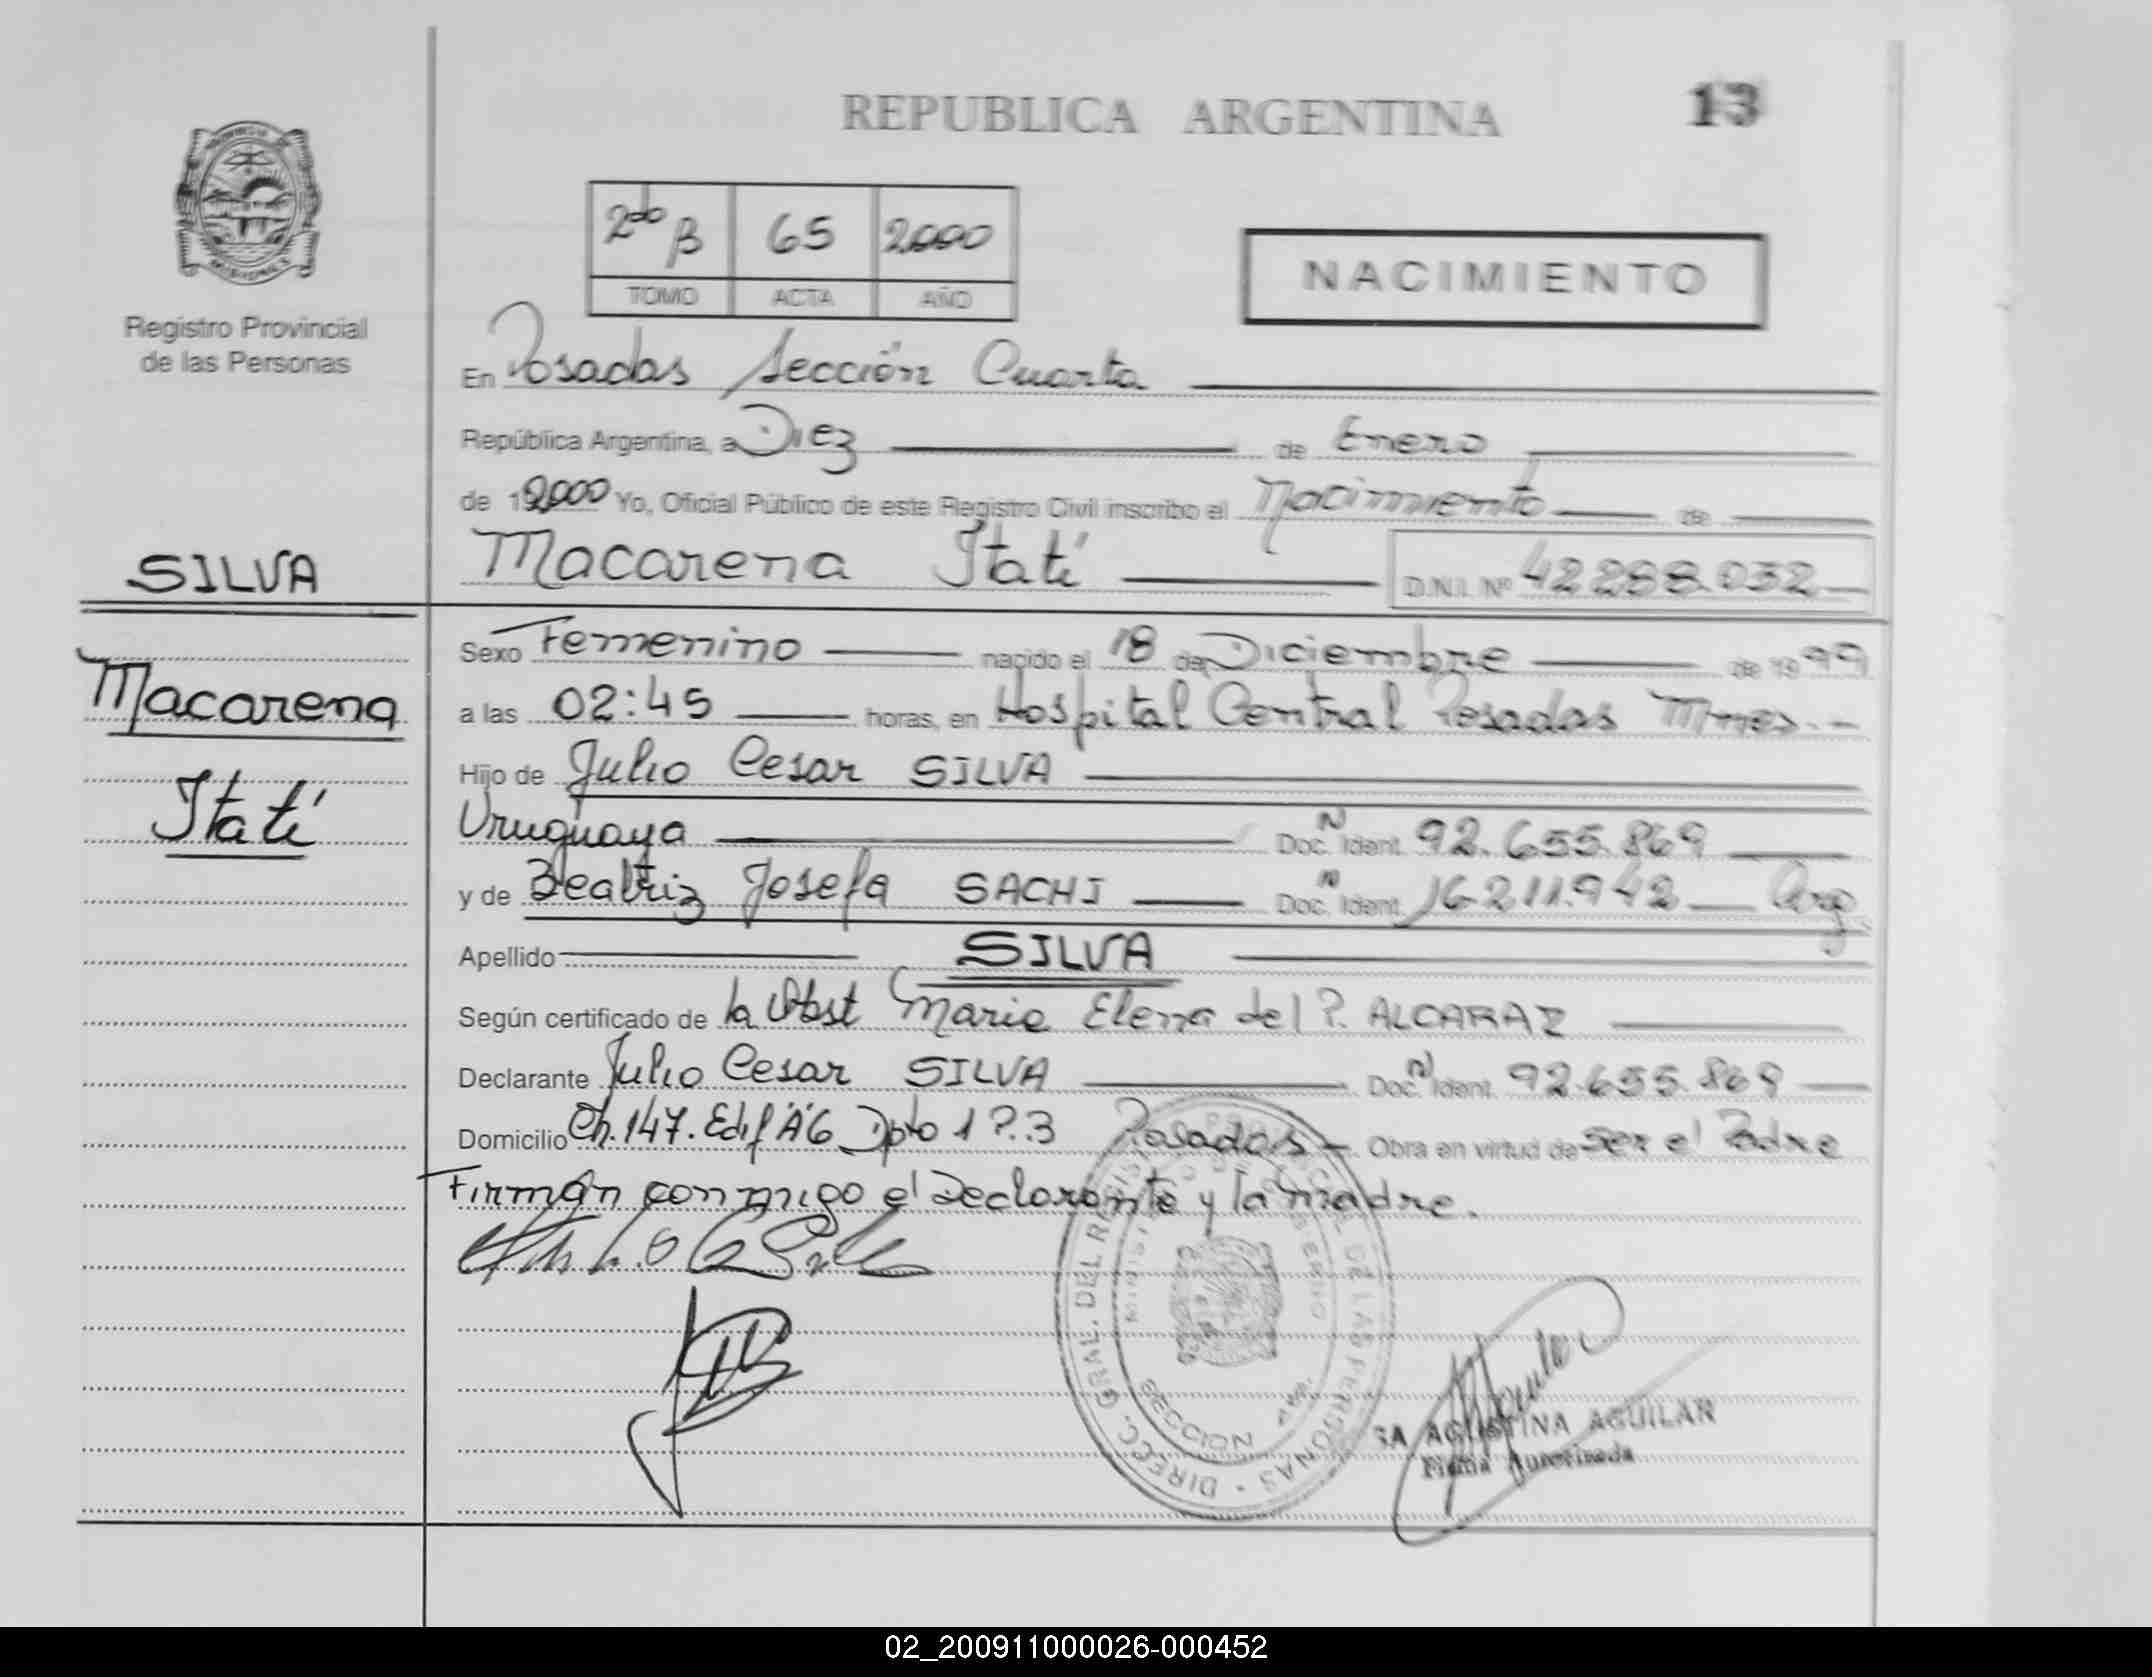 REPUBLICA ARGENTINA
13
2do B 65 2000
TOMO ACTA AÑO
NACIMIENTO
Registro Provincial
de las Personas
En Posadas Sección Cuarta
República Argentina, a Diez de Enero
de 2000 Yo, Oficial Público de este Registro Civil inscribo el Nacimiento de
SILVA
Macarena Itatí D.N.I. Nº 42288.032
Sexo Femenino nacido el 18 de Diciembre de 1999
Macarena
a las 02:45 horas, en Hospital Central Posadas Mnes.-
Hijo de Julio Cesar SILVA
Itatí
Uruguaya Doc. Ident. N 92.655.869
y de Beatriz Josefa SACHI Doc. Ident. N 16211.942 Arg
Apellido SILVA
Según certificado de la Obst Maria Elena del P. ALCARAZ
Declarante Julio Cesar SILVA Doc. Ident. N 92.655.869
Domicilio Ch.147.Edif "A"6 Dpto 1 P.3 Posadas - Obra en virtud de ser el Padre
Firman conmigo el Declarante y la madre.
DIRECC. GRAL. DEL REGIST PROVINCIAL DE LAS PERSONAS
MINISTERIO DE GOBIERNO
SECCION
RA AGUSTINA AGUILAR
Firma Autorizada
02_200911000026-000452